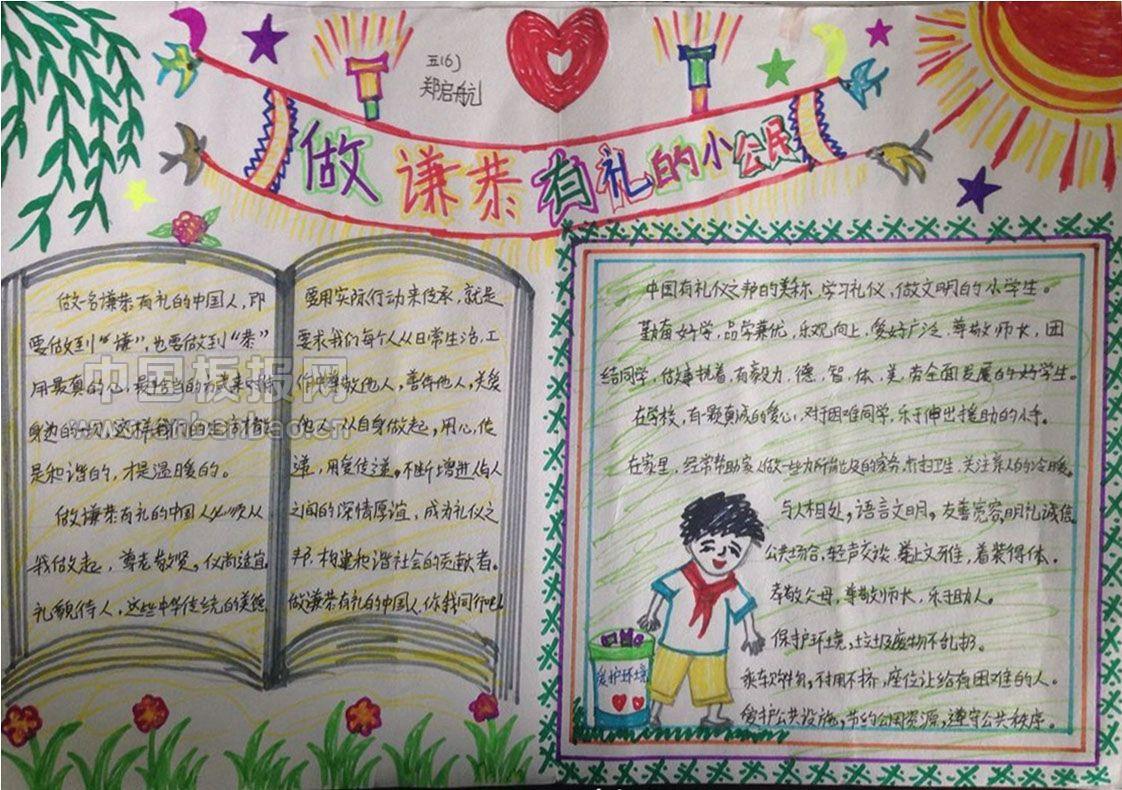 五(6)
郑启航
做谦恭有礼的小公民
做名谦恭有礼的中国人,即
要做到“谦”,也要做到“恭”
用最真的心,最恰当的方式来对待
身边的一切,这样我们的生活才能
是和谐的,才是温暖的。
做谦恭有礼的中国人必须从
我做起,尊老敬贤,仪尚适宜
礼貌待人,这些中华传统的美德
要用实际行动来传承,就是
要求我们每个人从日常生活,工
作中尊敬他人,善待他人,关爱
他人,从自身做起,用心传
递,用爱传递。不断增进人
之间的深情厚谊,成为礼仪之
邦,构建和谐社会的贡献者。
做谦恭有礼的中国人,你我同行吧!
中国有礼仪之邦的美称,学习礼仪,做文明的小学生。
勤奋好学,品学兼优,乐观向上,爱好广泛,尊敬师长,团
结同学,做事执着,有毅力,德,智,体,美,劳全面发展的好学生。
在学校,有一颗真诚的爱心,对于困难同学,乐于伸出援助的小手。
在家里,经常帮助家人做一些力所能及的家务,打扫卫生,关注亲人的冷暖。
与人相处,语言文明,友善宽容,明礼诚信
公共场合,轻声交谈,举止文雅,着装得体。
孝敬父母,尊敬师长,乐于助人。
保护环境,垃圾废物不乱扔。
乘车购物,不拥不挤,座位让给有困难的人。
爱护公共设施,节约公用资源,遵守公共秩序。
爱护环境
中国板报网